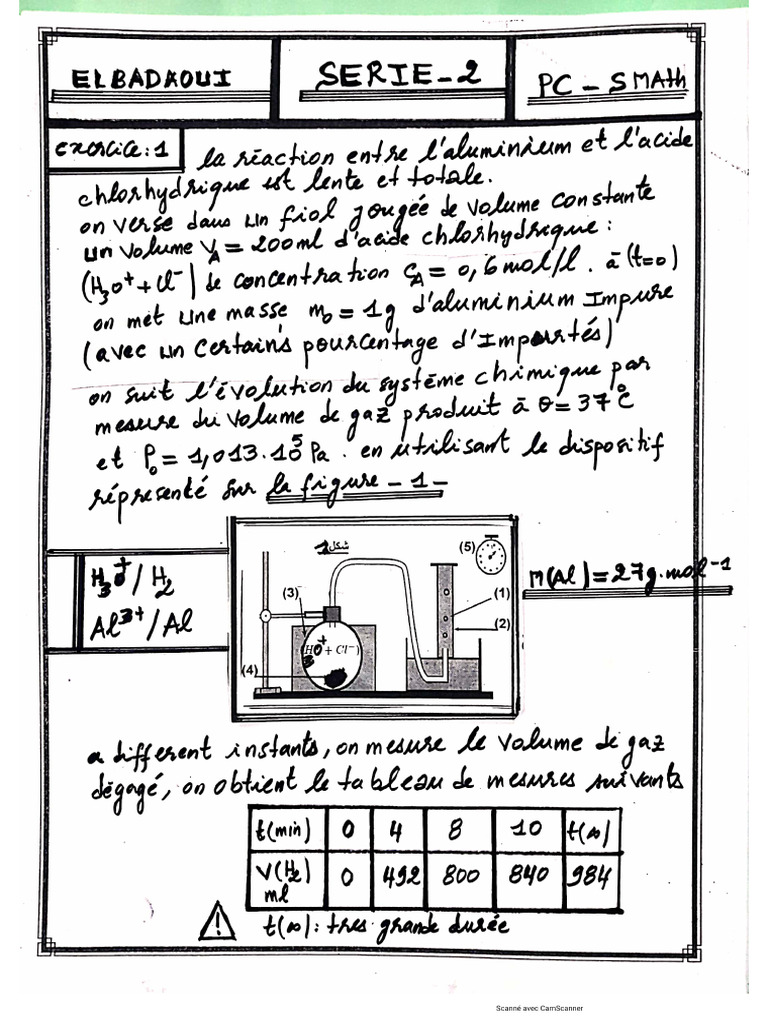 ELBADAOUI
SERIE-2
PC - SMATH
exercice:1
la réaction entre l'aluminium et l'acide
chlorhydrique est lente et totale.
on verse dans un fiol jougée de volume constante
un volume V_A = 200ml d'acide chlorhydrique:
(H3O+ + Cl-) de concentration C_A = 0,6mol/l. à (t=0)
on met une masse m0 = 1g d'aluminium Impure
(avec un certains pourcentage d'Impurtés)
on suit l'évolution du système chimique par
mesure du volume de gaz produit à θ = 37°C
et P0 = 1,013.10^5 Pa. en utilisant le dispositif
réprésenté sur la figure -1-
H3O+/H2
Al3+/Al
شكل 1
(5)
(3)
(1)
(2)
(H3O+ + Cl-)
(4)
M(Al) = 27g.mol-1
a différent instants, on mesure le volume de gaz
dégagé, on obtient le tableau de mesures suivants
t(min) 0 4 8 10 t(∞)
V(H2) ml 0 492 800 840 984
! t(∞): tres grande durée
Scanné avec CamScanner